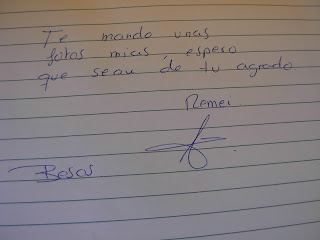 Te mando unas
fotos mias, espero
que sean de tu agrado
Remei
Besos